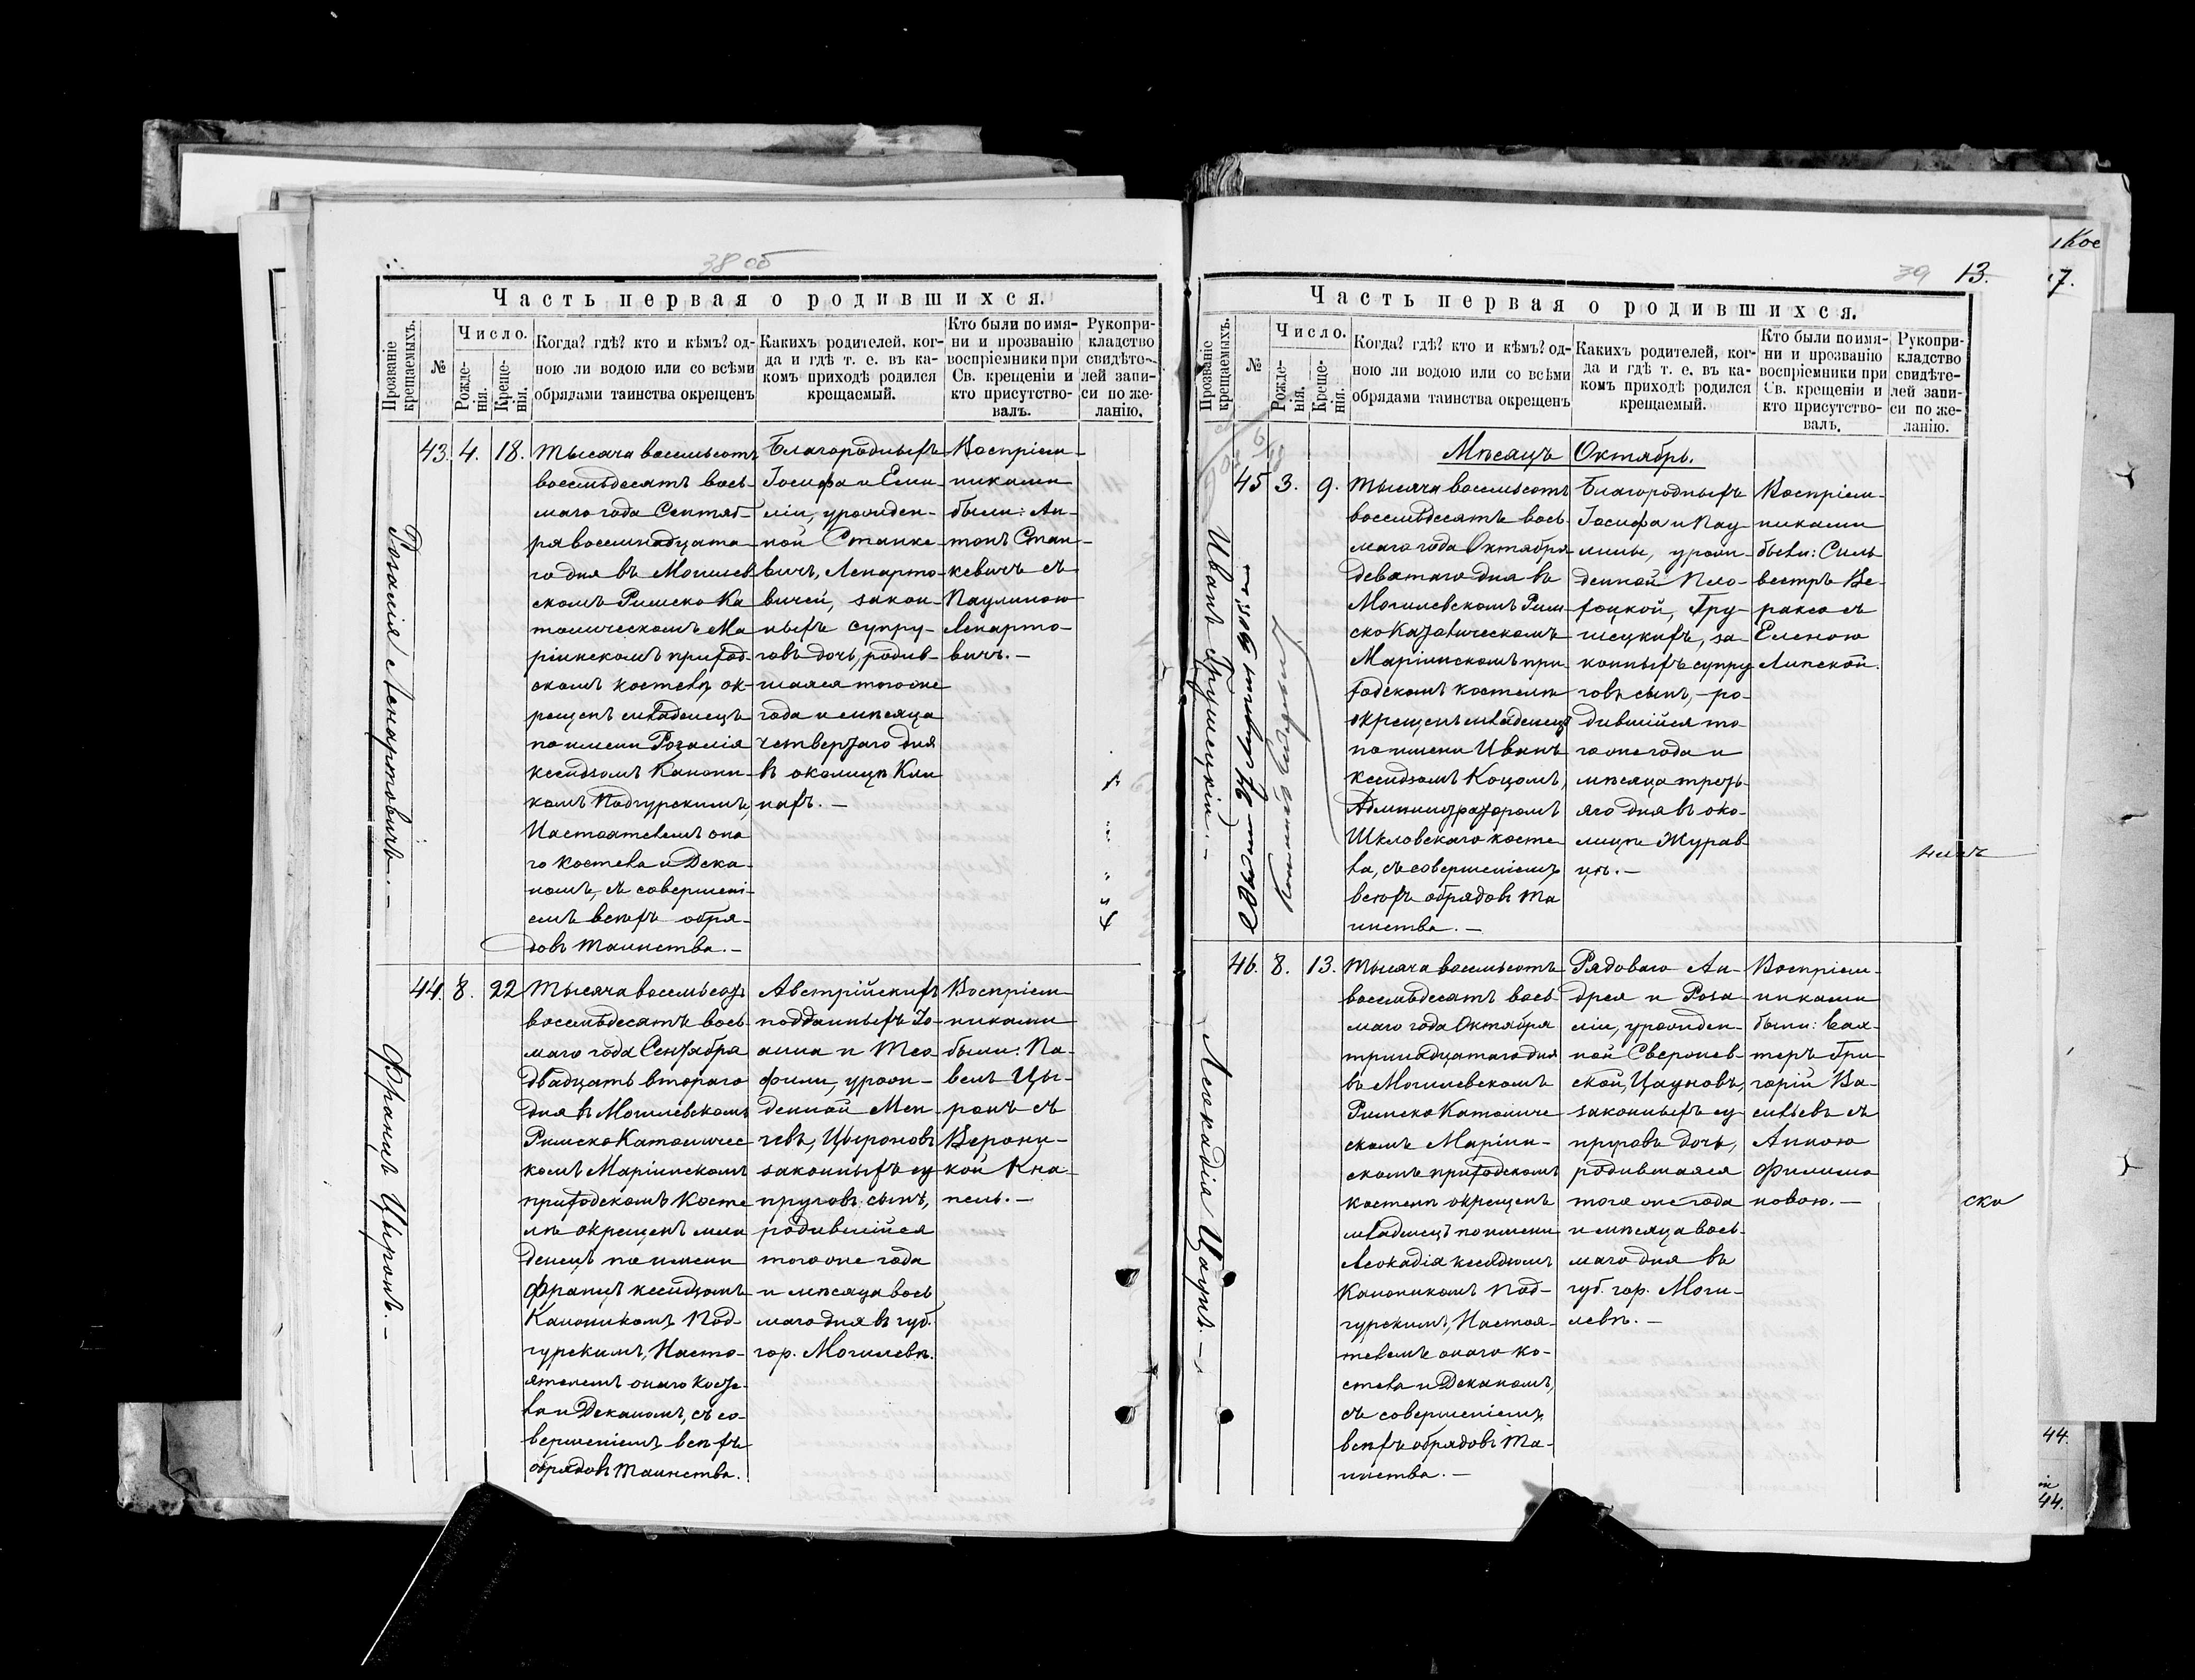 38 об
Часть первая о родившихся.
Прозваніе крещаемыхъ.
№
Число.
Рожденія.
Крещенія.
Когда? гдѣ? кто и кѣмъ? од-
ною ли водою или со всѣми
обрядами таинства окрещенъ
Какихъ родителей, ког-
да и гдѣ т. е. въ ка-
комъ приходѣ родился
крещаемый.
Кто были по имя-
ни и прозванію
воспріемники при
Св. крещеніи и
кто присутство-
валъ.
Рукопри-
кладство
свидѣте-
лей запи-
си по же-
ланію.
Розалія Ленартовичъ.–
43. 4. 18.
Тысяча восемьсотъ
восемьдесятъ вось-
маго года Сентяб-
ря восемнадцата-
го дня въ Могилев
скомъ Римско Ка
толическомъ Ма
ріинскомъ приход-
скомъ костелѣ ок-
рещенъ младенецъ
по имени Розалія
ксендзомъ Канони-
комъ Подгурскимъ,
Настоятелемъ она
го костела и Дека-
номъ, съ совершені-
емъ всѣхъ обря-
довъ таинства.–
Благородныхъ
Іосифа и Еми-
ліи, урожден-
ной Станке-
вичъ, Ленарто-
вичей, закон-
ныхъ супру-
говъ дочь, родив-
шаяся того же
года и мѣсяца
четвертаго дня
въ околицѣ Кли
нахъ.–
Воспріем-
никами
были: Ан-
тонъ Стан-
кевичъ съ
Паулиною
Ленарто-
вичъ.–
Францъ Цыронъ.–
44. 8. 22
Тысяча восемьсотъ
восемьдесятъ вось-
маго года Сентября
двадцать втораго
дня въ Могилевскомъ
Римско Католичес
комъ Маріинскомъ
приходскомъ Косте
лѣ окрещенъ мла
денецъ по имени
Францъ ксендзомъ
Каноникомъ Под-
гурскимъ, Насто-
ятелемъ онаго косте-
ла и Деканомъ, съ со-
вершеніемъ всѣхъ
обрядовъ таинства.
Австрійскихъ
подданныхъ Іо-
анна и Тео-
фили, урож-
денной Мен-
чевъ, Цыроновъ
законныхъ су
пруговъ сынъ,
родившійся
того же года
и мѣсяца вось
маго дня въ губ.
гор. Могилевѣ.
Воспріем-
никами
были: Па-
велъ Цы-
ронъ съ
Верони-
кой Кна-
пель.–
39 13.
Часть первая о родившихся.
Прозваніе крещаемыхъ.
№
Число.
Рожденія.
Крещенія.
Когда? гдѣ? кто и кѣмъ? од-
ною ли водою или со всѣми
обрядами таинства окрещенъ
Какихъ родителей, ког-
да и гдѣ т. е. въ ка-
комъ приходѣ родился
крещаемый.
Кто были по имя-
ни и прозванію
воспріемники при
Св. крещеніи и
кто присутство-
валъ.
Рукопри-
кладство
свидѣте-
лей запи-
си по же-
ланію.
Мѣсяцъ Октябрь.
Иванъ Грушецкій.–
45 3. 9.
Тысяча восемьсотъ
восемьдесятъ вось-
маго года Октября
девятаго дня въ
Могилевскомъ Рим
ско Католическомъ
Маріинскомъ при-
ходскомъ костелѣ
окрещенъ младенецъ
по имени Иванъ
ксендзомъ Коцомъ,
Администраторомъ
Шкловскаго косте-
ла, съ совершеніемъ
всѣхъ обрядовъ та
инства.–
Благородныхъ
Іосифа и Пау-
лины, урож-
денной Пло-
хоцкой, Гру-
шецкихъ, за-
конныхъ супру
говъ сынъ, ро-
дившійся то-
го же года и
мѣсяца треть-
яго дня въ око-
лицѣ Журав-
цѣ.–
Воспріем-
никами
были: Силь
вестръ Ве-
раксо съ
Еленою
Липской.
Леокадія Цаунъ.–
46. 8. 13.
Тысяча восемьсотъ
восемьдесятъ вось
маго года Октября
тринадцатаго дня
въ Могилевскомъ
Римско Католиче
скомъ Маріин-
скомъ приходскомъ
костелѣ окрещенъ
младенецъ по имени
Леокадія ксендзомъ
Каноникомъ Под-
гурскимъ, Настоя-
телемъ онаго ко-
стела и Деканомъ,
съ совершеніемъ
всѣхъ обрядовъ та-
инства.–
Рядоваго Ан-
дрея и Роза-
ліи, урожден-
ной Свержев-
ской, Цауновъ,
законныхъ су
пруговъ дочь,
родившаяся
того же года
и мѣсяца вось-
маго дня въ
губ. гор. Моги-
левѣ.–
Воспріем-
никами
были: Вах-
теръ Гри-
горій Ва-
сильевъ съ
Анною
Филимо
новою.–
ска
44.
44.